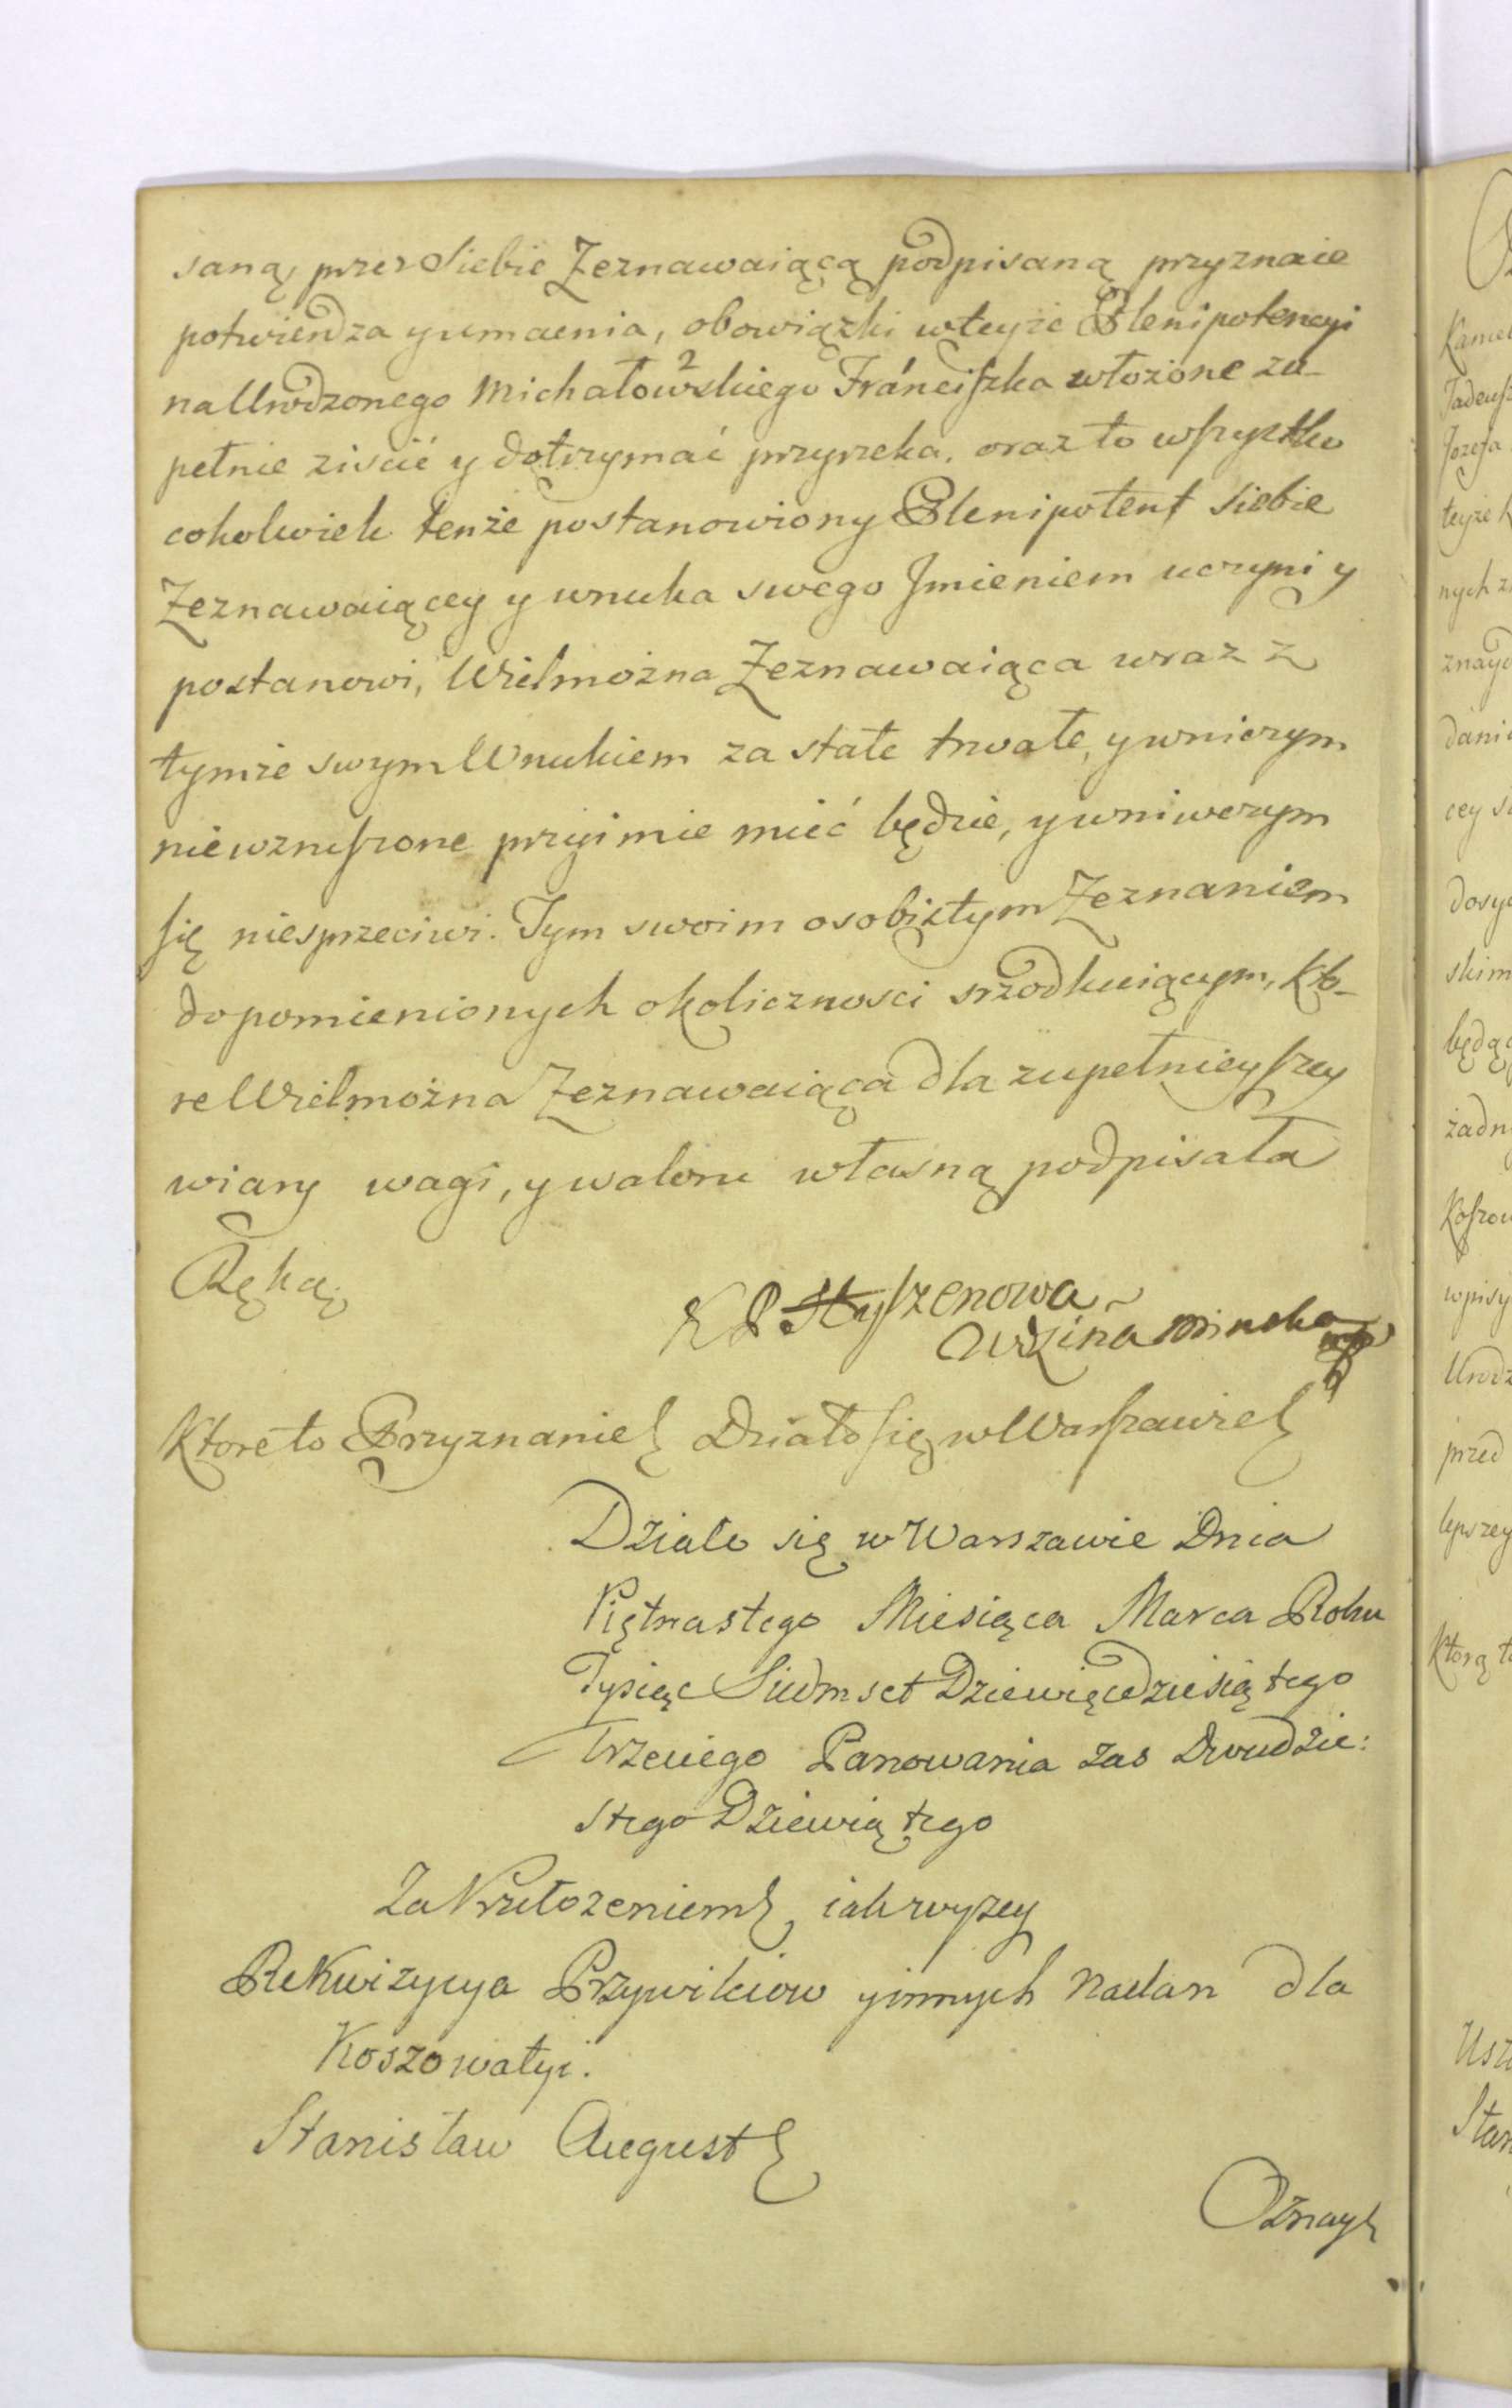 saną, przez Siebie Zeznawaiącą podpisaną przyznaie
potwierdza y umacnia, obowiązki wteyże Plenipotencyi
na Urodzonego Michałowskiego Franciszka włożone zu-
pełnie ziscić y dotrzymać przyrzeka, oraz to wszystko
cokolwiek tenże postanowiony Plenipotent Siebie
Zeznawaiącey y wnuka swego Jmieniem uczyni y
postanowi, Wielmożna Zeznawaiąca wraz z
tymże swym Wnukiem za stałe trwałe, y wniczym
niewzruszone przyimie mieć będzie, y wniwczym
się niesprzeciwi. Tym swoim osobistym Zeznaniem
do pomienionych okoliczności srzodkuiącym, Kto-
re Wielmożna Zeznawaiąca dla zupełnieyszey
wiary wagi, y waloru własną podpisała
Ręką.
K P Hyszenowa
Ktore to Przyznanie Działo się w Warszawie
Działo się w Warszawie Dnia
Piętnastego Miesiąca Marca Roku
Tysiąc Siedmset Dziewięcdziesiątego
Trzeciego Panowania zas Dwudzie:
stego Dziewiątego
Za Przełożeniem iak wyżey
Rekwizycya Przywileiow y innych Nadan dla
Koszowatyi.
Stanisław August
Oznay